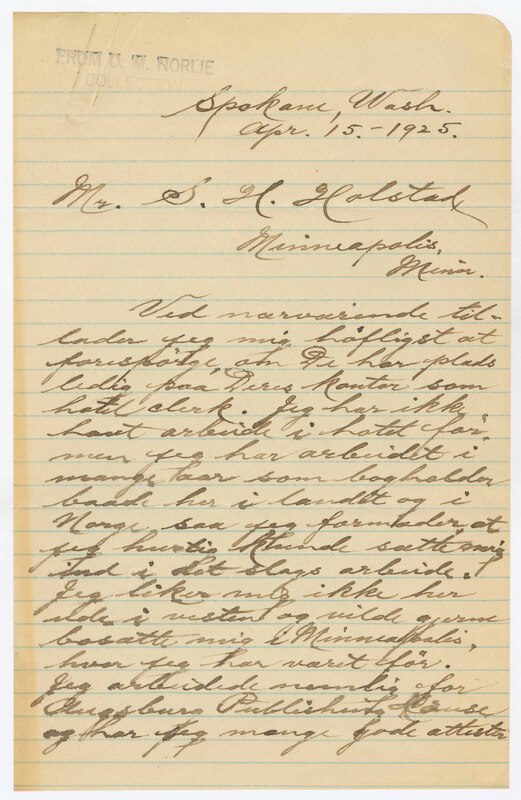 FROM O. M. NORLIE
COLLECTION
Spokane, Wash.
Apr. 15.-1925.
Mr. S. H. Holstad
Minneapolis,
Minn.
Ved nærværende til-
lader jeg mig höfligst at
forespörge, om De har plads
ledig paa Deres kontor som
hotel clerk. Jeg har ikke
havt arbeide i hotel för,
men jeg har arbeidet i
mange aar som bogholder
baade her i landet og i
Norge, saa jeg formoder, at
jeg hurtig kunde sætte mig
ind i det slags arbeide.
Jeg liker mig ikke her
ude i vesten og vilde gjerne
bosætte mig i Minneapolis,
hvor jeg har været för.
Jeg arbeidede nemlig for
Augsburg Publishing House
og har jeg mange gode attester